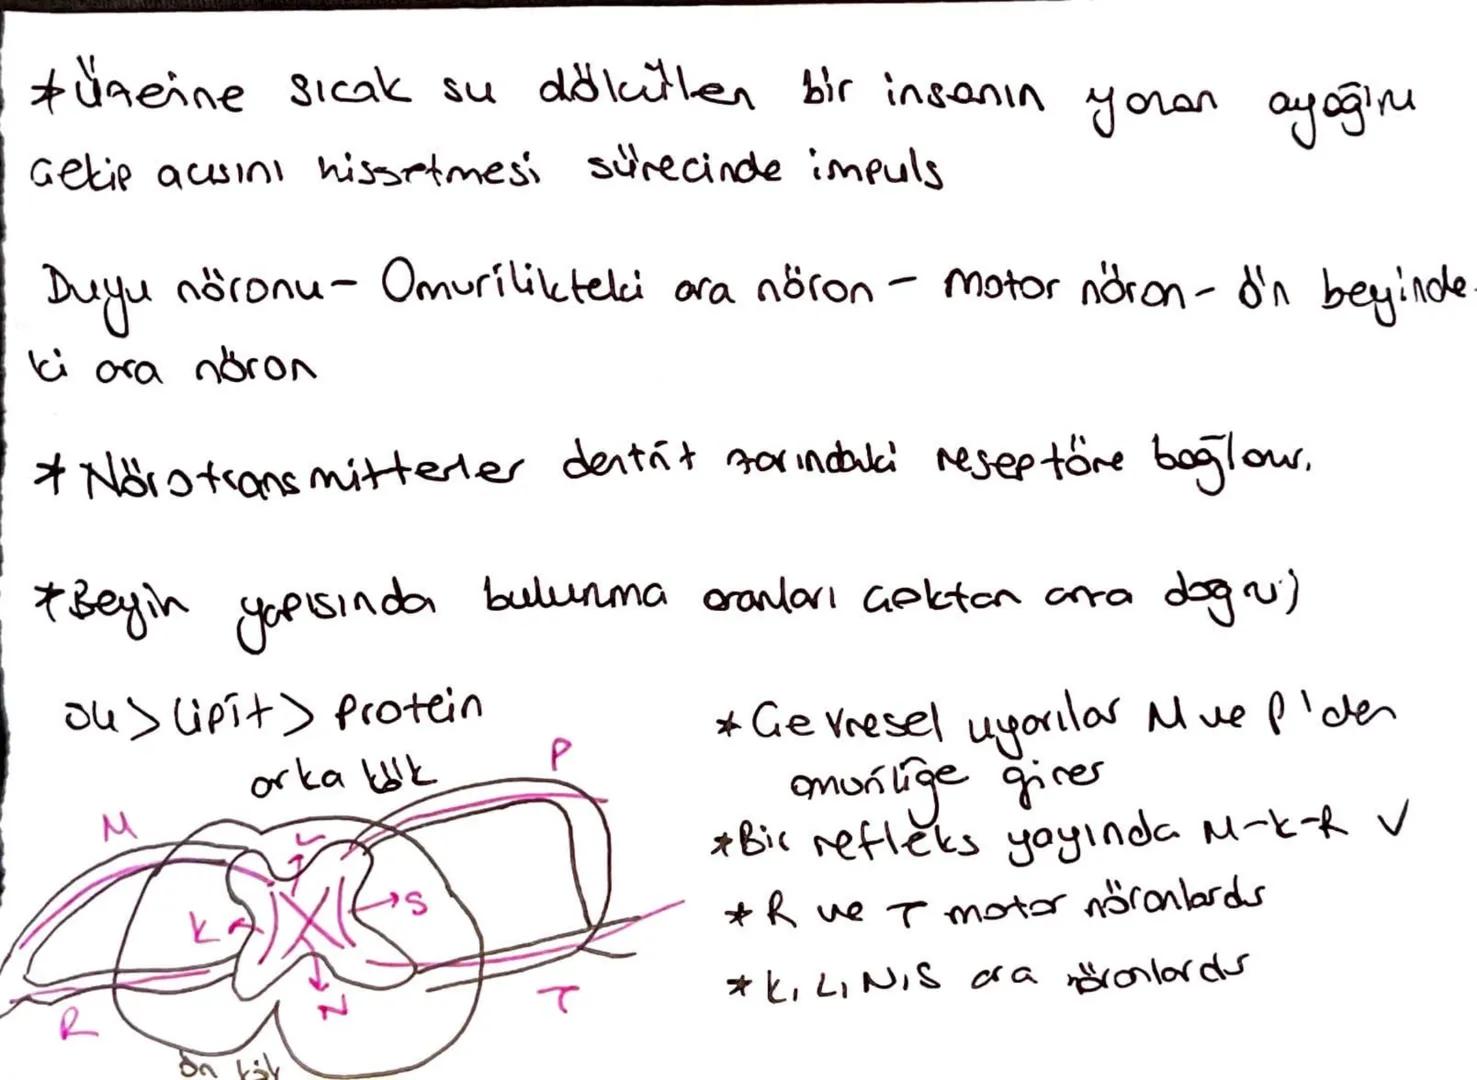 *Üzerine sıcak su dökülen bir insanın yanan ayağını
çekip acısını hissetmesi sürecinde impuls
Duyu nöronu- Omurilikteki ara nöron - motor nöron- ön beyinde-
ki ara nöron
*Nörotransmitterler dentrit zarındaki reseptöre bağlanır.
*Beyin yapısında bulunma oranları çoktan aza doğru)
su > lipit > protein
arka kök
P
M
L
K
S
N
R
T
ön kök
*Çevresel uyarılar M ve P'den
omuriliğe girer
*Bir refleks yayında M-K-R ✓
*R ve T motor nöronlardır
*K, L, N, S ara nöronlardır